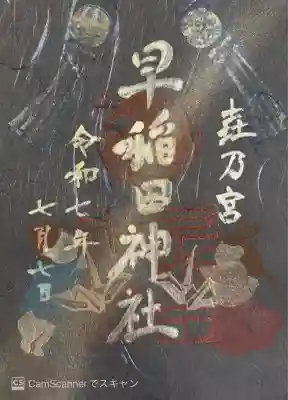 垚乃宮
早稲田神社
令和七年
七月七日
CS CamScannerでスキャン